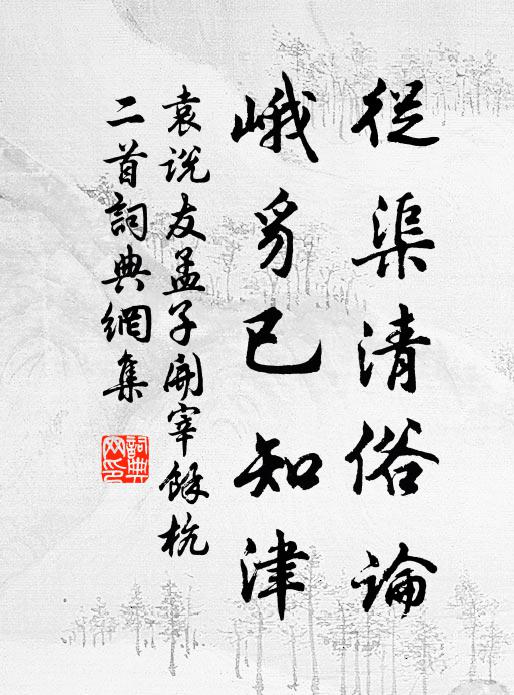 從渠清俗論
峨豸已知津
袁說友孟子開宰餘杭
二首詞典網集
詞典網印